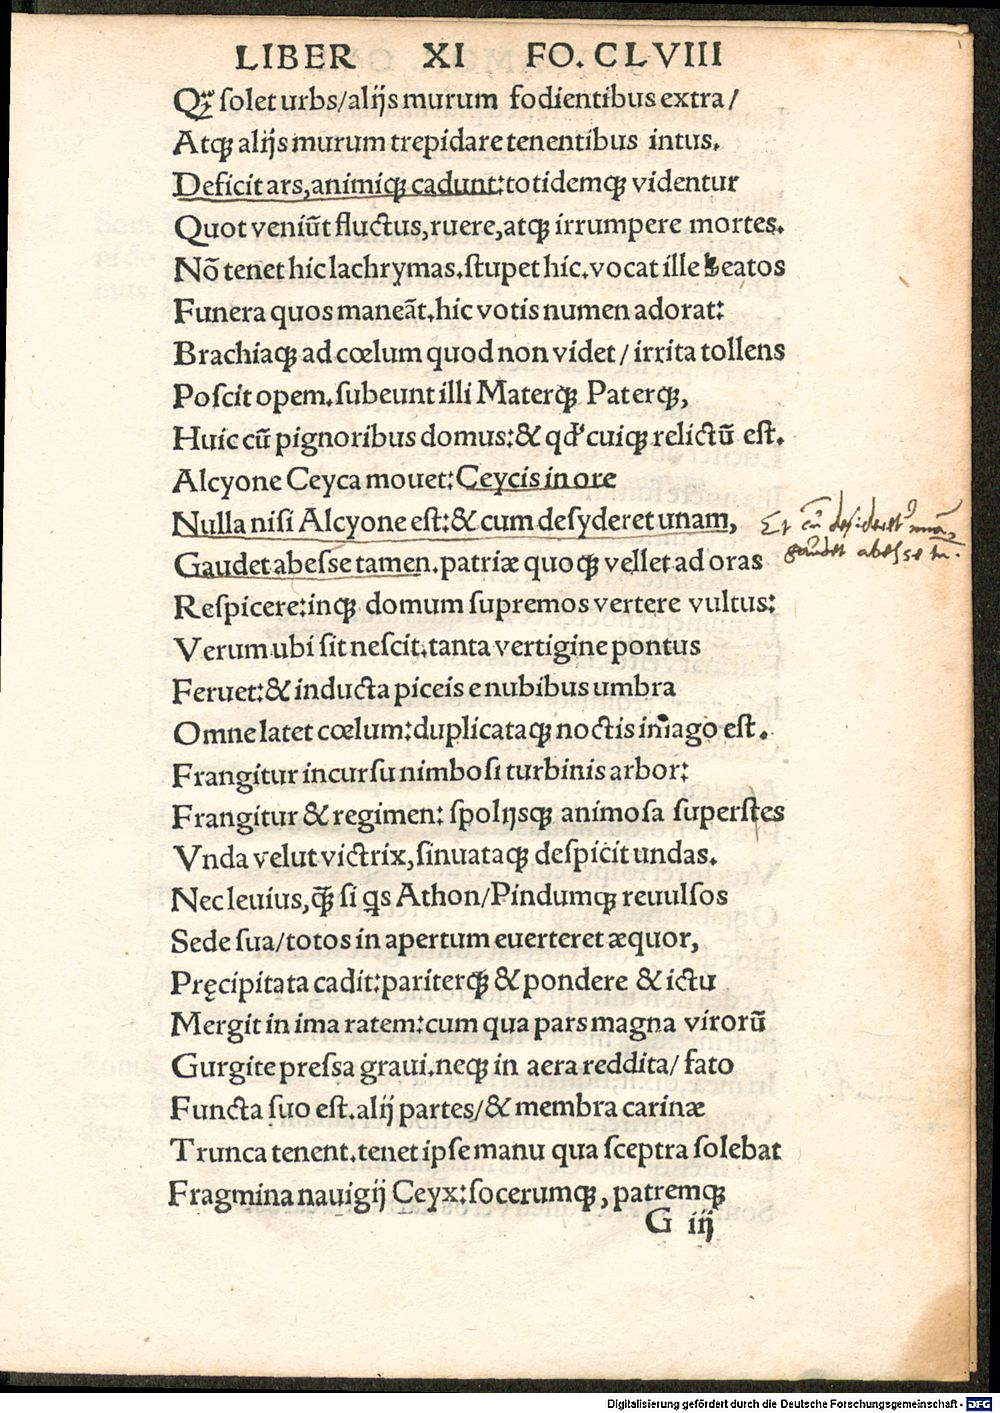 LIBER XI FO. CLVIII
Qꝫ ſolet urbs/alijs murum fodientibus extra/
Atqꝫ alijs murum trepidare tenentibus intus.
Deficit ars,animiqꝫ cadunt:totidemqꝫ videntur
Quot veniūt fluctus,ruere,atqꝫ irrumpere mortes.
Nō tenet hic lachrymas.ſtupet hic.vocat ille beatos
Funera quos maneāt.hic votis numen adorat:
Brachiaqꝫ ad cœlum quod non videt/irrita tollens
Poſcit opem.ſubeunt illi Materqꝫ Paterqꝫ,
Huic cū pignoribus domus:& qd' cuiqꝫ relictū eſt.
Alcyone Ceyca mouet:Ceycis in ore
Nulla niſi Alcyone eſt:& cum deſyderet unam,
Gaudet abeſse tamen.patriæ quoqꝫ vellet ad oras
Reſpicere:inqꝫ domum ſupremos vertere vultus:
Verum ubi ſit neſcit.tanta vertigine pontus
Feruet:& inducta piceis e nubibus umbra
Omne latet cœlum:duplicataqꝫ noctis imago eſt.
Frangitur incurſu nimboſi turbinis arbor:
Frangitur & regimen: ſpolijsqꝫ animoſa ſuperſtes
Vnda velut victrix,ſinuataqꝫ deſpicit undas.
Nec leuius,qꝫ̄ ſi qs Athon/Pindumqꝫ reuulſos
Sede ſua/totos in apertum euerteret æquor,
Pręcipitata cadit:pariterqꝫ & pondere & ictu
Mergit in ima ratem:cum qua pars magna virorū
Gurgite preſſa graui.neqꝫ in aera reddita/fato
Functa ſuo eſt.alij partes/& membra carinæ
Trunca tenent.tenet ipſe manu qua ſceptra ſolebat
Fragmina nauigij Ceyx:ſocerumqꝫ,patremqꝫ
G iij
Et cū deſideret
gaudet abeſse tn.
Digitalisierung gefördert durch die Deutsche Forschungsgemeinschaft - DFG